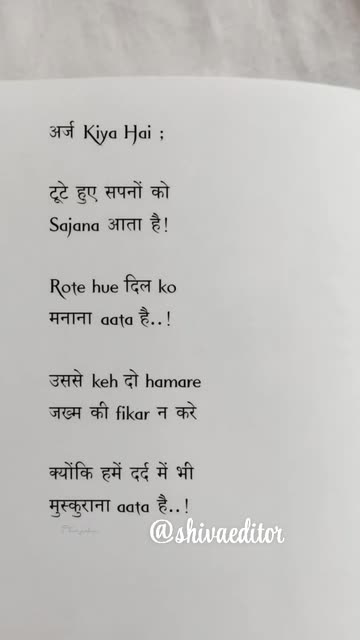 अर्ज Kiya Hai ;
टूटे हुए सपनों को
Sajana आता है!
Rote hue दिल ko
मनाना aata है..!
उससे keh दो hamare
जख्म की fikar न करे
क्योंकि हमें दर्द में भी
मुस्कुराना aata है..!
@shivaeditor